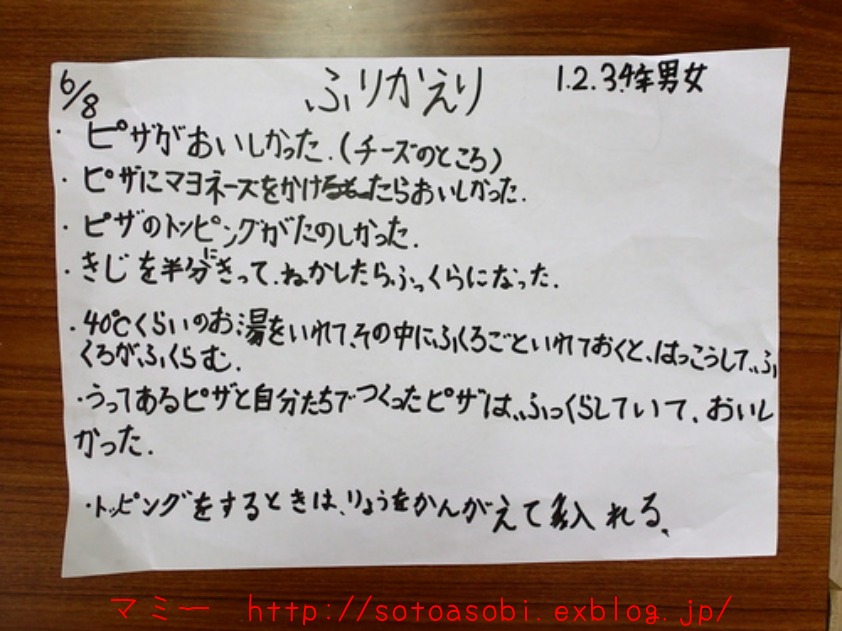 6/8 ふりかえり 1.2.3.4年男女
・ピザがおいしかった.(チーズのところ)
・ピザにマヨネーズをかけたらおいしかった.
・ピザのトッピングがたのしかった.
・きじを半分にきって.ねかしたらふっくらになった.
・40℃くらいのお湯をいれて、その中にふくろごといれておくと、はっこうして、ふ
くろがふくらむ.
・うってあるピザと自分たちでつくったピザは、ふっくらしていて、おいし
かった.
・トッピングをするときは、りょうをかんがえて入れる、
マミー http://sotoasobi.exblog.jp/